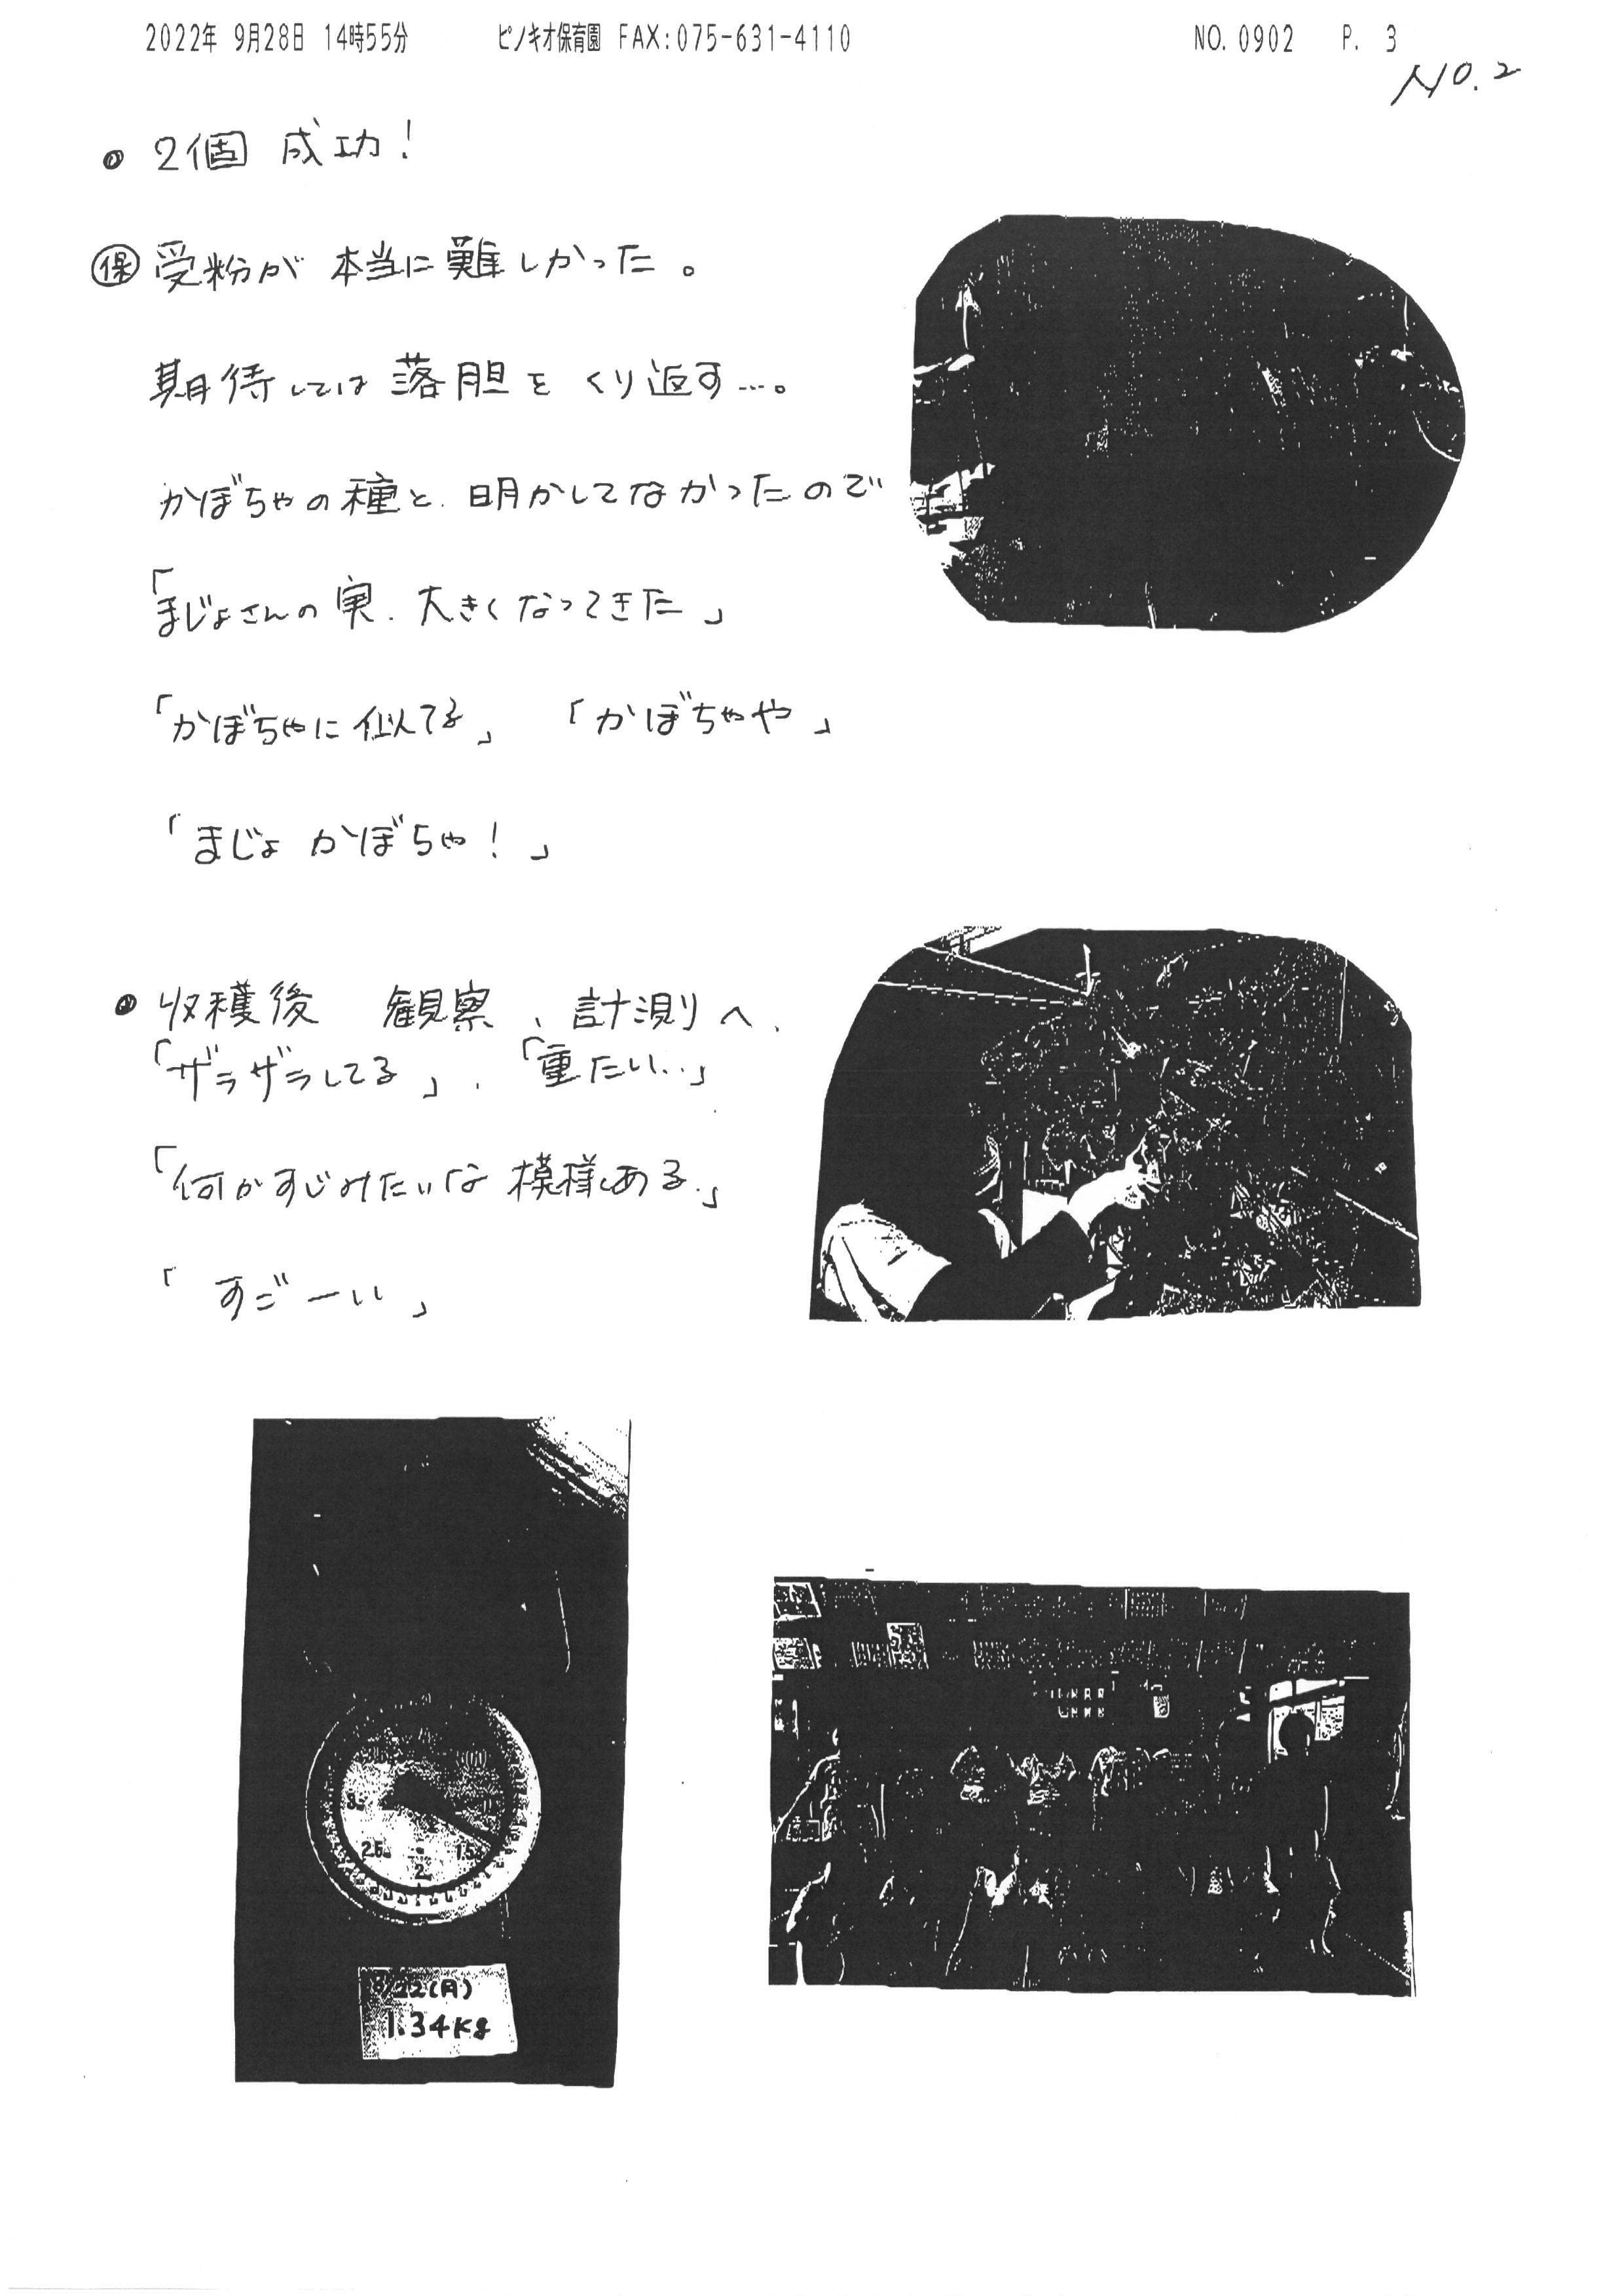 2022年 9月28日 14時55分 ピノキオ保育園 FAX:075-631-4110 NO. 0902 P. 3
NO.2
● 2個 成功!
㊩ 受粉が 本当に難しかった。
期待しては落胆を くり返す…。
かぼちゃの種と、明かしてなかったので
「まじょさんの実、大きくなってきた」
「かぼちゃに似てる」 「かぼちゃや」
「まじょ かぼちゃ!」
● 収穫後 観察、計測へ、
「ザラザラしてる」、「重たい…」
「何かすじみたいな模様ある。」
「すごーい」
2.5
1.5
2
8/22(月)
1.34Kg